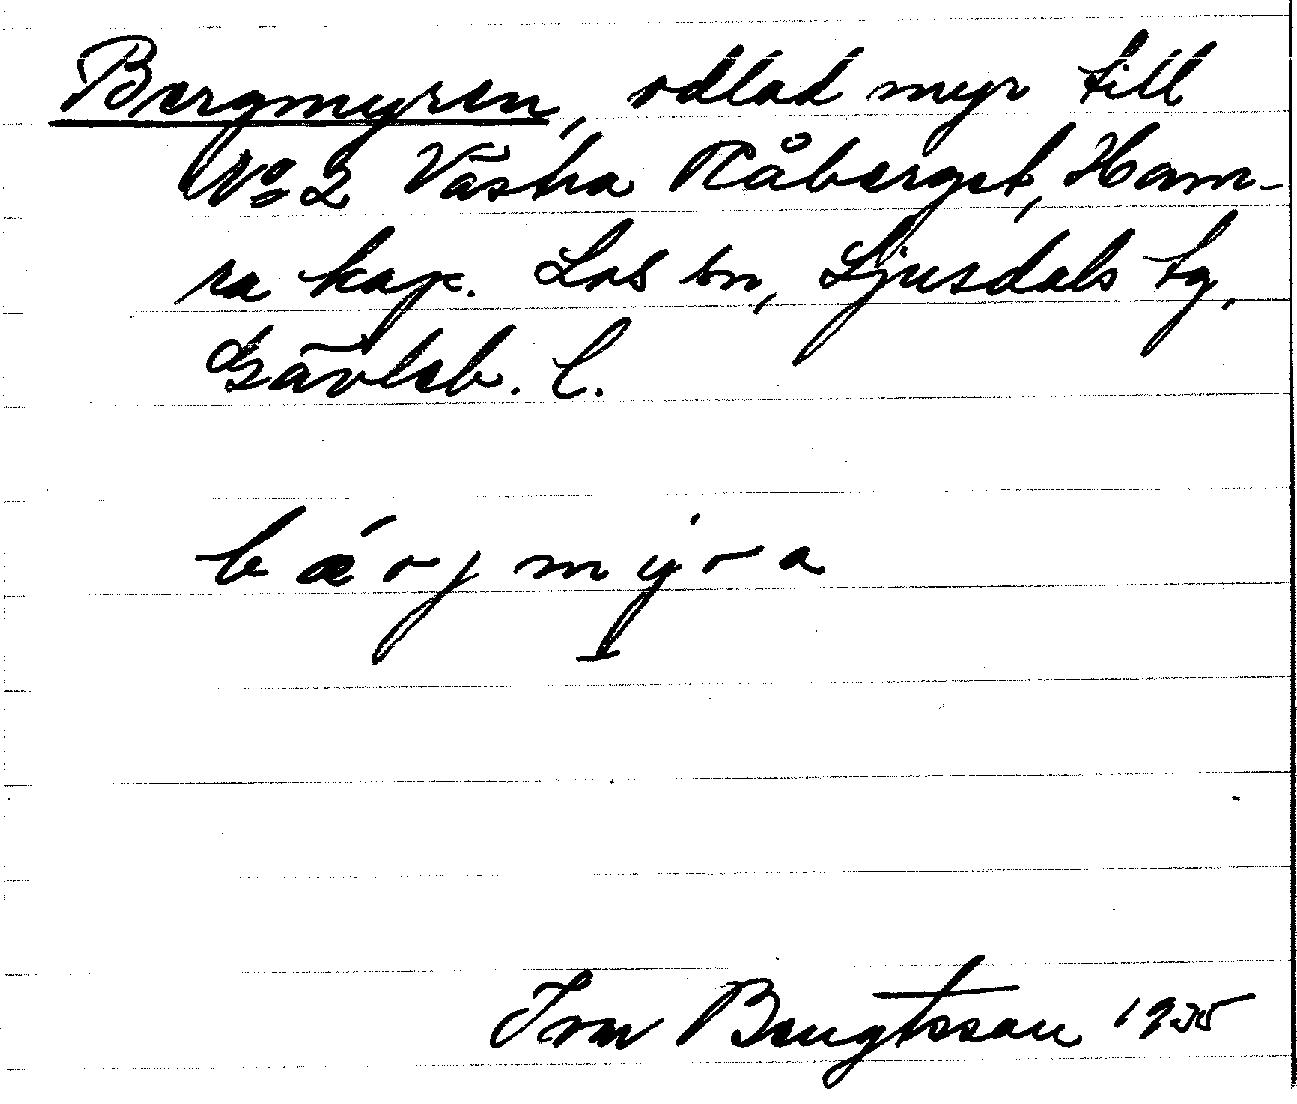 Bergmyren, odlad myr till
No 2 Västra Råberget, Ham-
ra kap. Los sn, Ljusdals tg,
Gävleb. l.
bǽrjmýra
Ivar Bengtsson 1935